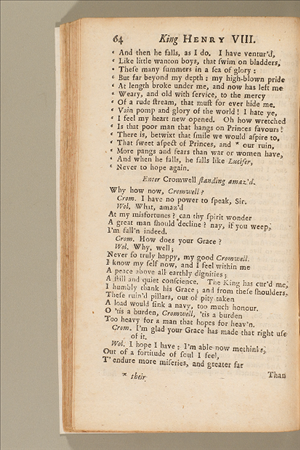 64 King HENRY VIII.
‘ And then he falls, as I do. I have ventur'd,
‘ Like little wanton boys, that ſwim on bladders,
‘ Theſe many ſummers in a ſea of glory:
‘ But far beyond my depth: my high-blown pride
‘ At length broke under me, and now has left me
‘ Weary, and old with ſervice, to the mercy
‘ Of a rude ſtream, that muſt for ever hide me.
‘ Vain pomp and glory of the world! I hate ye,
‘ I feel my heart new opened. Oh how wretched
‘ Is that poor man that hangs on Princes favours!
‘ There is, betwixt that ſmile we would aſpire to,
‘ That ſweet aſpect of Princes, and * our ruin,
‘ More pangs and fears than war or women have,
‘ And when he falls, he falls like Lucifer,
‘ Never to hope again.
Enter Cromwell ſtanding amaz'd.
Why how now, Cromwell?
Crom. I have no power to ſpeak, Sir.
Wol. What, amaz'd
At my misfortunes? can thy ſpirit wonder
A great man ſhould decline? nay, if you weep,
I'm fall'n indeed.
Crom. How does your Grace?
Wol. Why, well;
Never ſo truly happy, my good Cromwell.
I know my ſelf now, and I feel within me
A peace above all earthly dignities;
A ſtill and quiet conſcience. The King has cur'd me,
I humbly thank his Grace; and from theſe ſhoulders,
Theſe ruin'd pillars, out of pity taken
A load would ſink a navy, too much honour.
O 'tis a burden, Cromwell, 'tis a burden
Too heavy for a man that hopes for heav'n.
Crom. I'm glad your Grace has made that right uſe
of it.
Wol. I hope I have: I'm able now methinks,
Out of a fortitude of ſoul I feel,
T' endure more miſeries, and greater far
* their Than